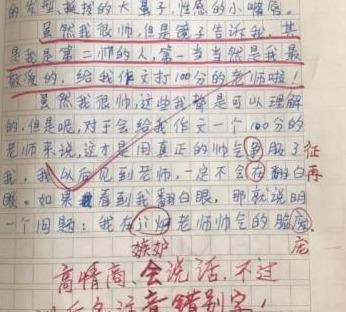 的发型，挺拔的大鼻子，性感的小嘴唇。
虽然我很帅，但是镜子告诉我，其
是我是第二帅的人，第一当当然是我最
敬爱的，给我作文打100分的老师啦！
虽然我很帅，这些我都是可以理解
的，但是呢，对于会给我作文一个100分的
老师来说，这才是用真正的帅气争服了 征
我，我以后见到老师，一定不会在翻白 再
眼。如果看到我翻白眼，那就说明
一个问题：我在 老师帅气的脸
嫉妒 庞
高情商，会说话，不过
意错别字！